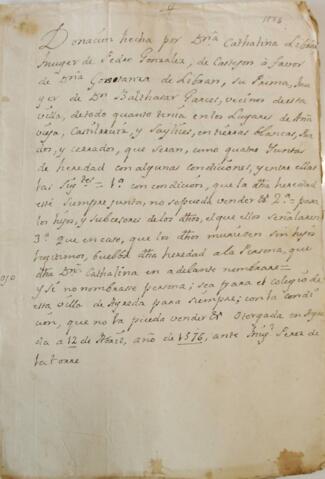 1576
Donacion hecha por Dña Cathalina Librán
muger de Pedro Gonzalez, de Castejon à favor
de Dña Gostanza de Libran, su Prima, mu
ger de Dn Balthasar Garces, vecinos de esta
villa, de todo quanto tenia en los Lugares de
vieja, Castilruiz, y en tierras blancas,
y cerrados, que seran, como quatro Yuntas
de heredad con algunas condiciones, y entre ellas
las sigtes = 1ª con condicion, que la dha heredad
esté siempre junta, no se pueda vender &ª 2ª = para
los hijos, y subcesores de los dhos, el que ellos señalaren
3ª que en caso, que los dhos muriesen sin hijos
legitimos, buelba dha heredad a la Persona, que
dha Dña Cathalina en adelante nombrare =
y si no nombrasse persona; sea para el colegio de
esta villa de Agreda para siempre; con la condi
cion, que no la pueda vender &ª Otorgada en Agre
da a 12 de año de 1576, ante Migl Perez de
la torre